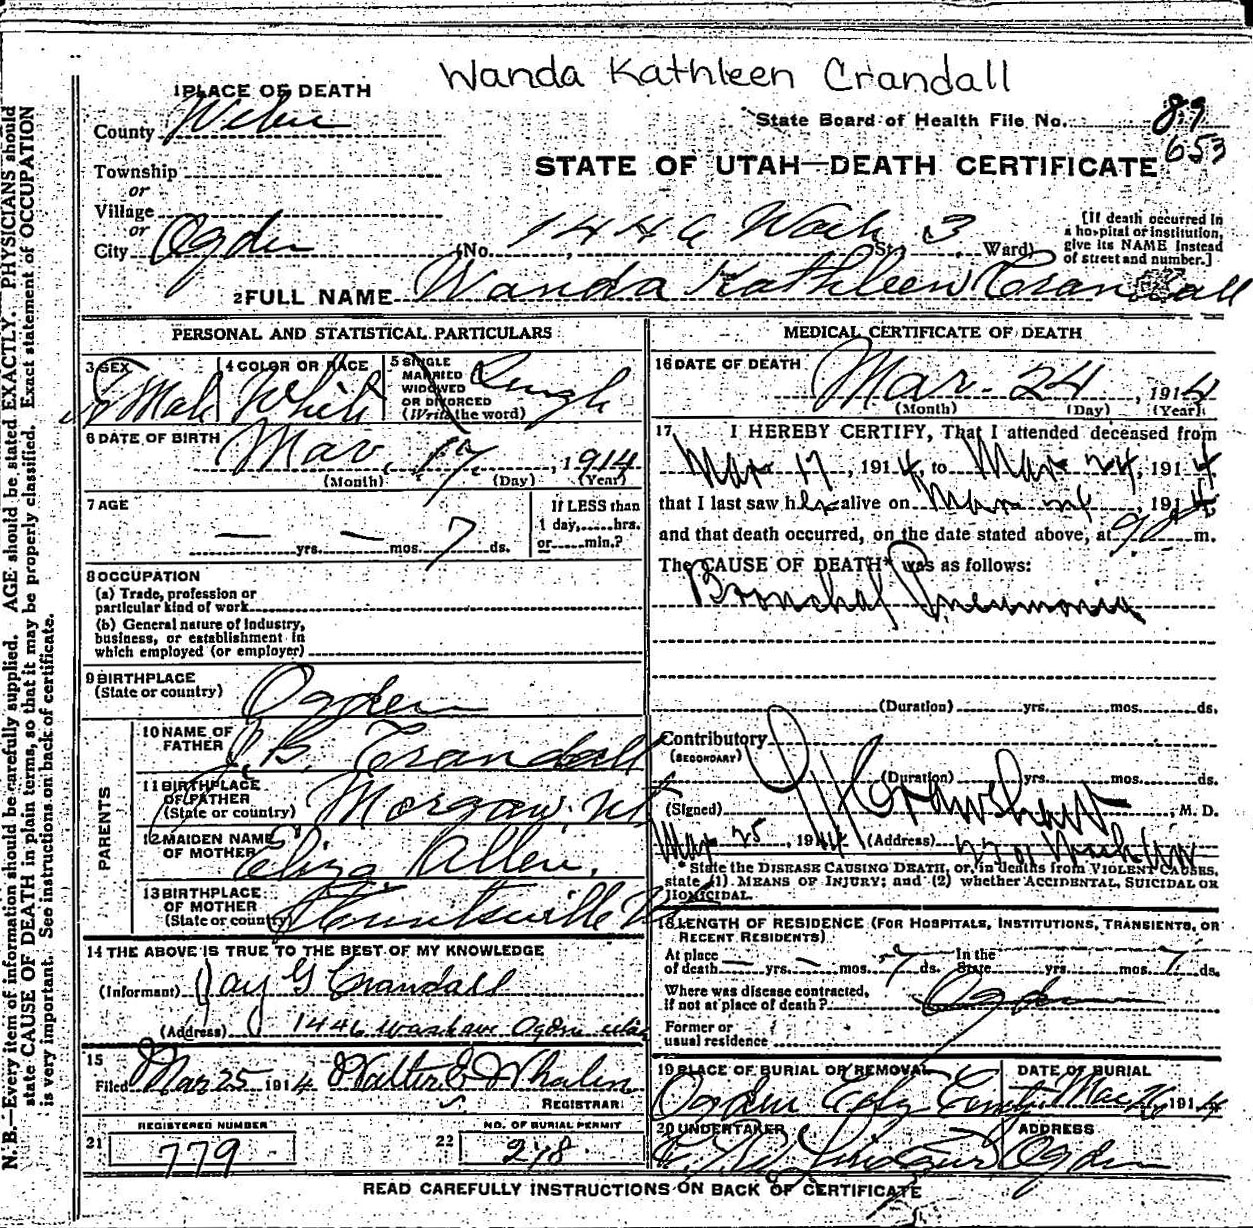 Wanda Kathleen Crandall
1 PLACE OF DEATH
County Weber
State Board of Health File No. 89
653
STATE OF UTAH—DEATH CERTIFICATE
Township
or
Village
or
City Ogden (No. 1446 Wash St. 3 Ward)
[If death occurred in
a hospital or institution,
give its NAME instead
of street and number.]
2 FULL NAME Wanda Kathleen Crandall
PERSONAL AND STATISTICAL PARTICULARS
3 SEX
4 COLOR OR RACE White
5 SINGLE
MARRIED
WIDOWED
OR DIVORCED
(Write the word) Single
6 DATE OF BIRTH
Mar. 17, 1914
(Month) (Day) (Year)
7 AGE
— yrs. — mos. 7 ds.
If LESS than
1 day,......hrs.
or......min.?
8 OCCUPATION
(a) Trade, profession or
particular kind of work
(b) General nature of industry,
business, or establishment in
which employed (or employer)
9 BIRTHPLACE
(State or country) Ogden
PARENTS
10 NAME OF
FATHER J. G. Crandall
11 BIRTHPLACE
OF FATHER
(State or country) Morgan, Ut
12 MAIDEN NAME
OF MOTHER Eliza Allen.
13 BIRTHPLACE
OF MOTHER
(State or country) Huntsville
14 THE ABOVE IS TRUE TO THE BEST OF MY KNOWLEDGE
(Informant) Jay G Crandall
(Address) 1446 Wash ave Ogden utah
15
Filed Mar 25 1914 Walter E Whalen
REGISTRAR
REGISTERED NUMBER
21 779
NO. OF BURIAL PERMIT
22 248
MEDICAL CERTIFICATE OF DEATH
16 DATE OF DEATH
Mar. 24, 1914
(Month) (Day) (Year)
17 I HEREBY CERTIFY, That I attended deceased from
Mar 17, 1914, to Mar 24, 1914
that I last saw her alive on Mar 24, 1914
and that death occurred, on the date stated above, at m.
The CAUSE OF DEATH* was as follows:
Bronchal Pneumonia
(Duration) yrs. mos. ds.
Contributory
(SECONDARY)
(Duration) yrs. mos. ds.
(Signed) M. D.
Mar 25, 1914 (Address)
* State the DISEASE CAUSING DEATH, or, in deaths from VIOLENT CAUSES,
state (1) MEANS OF INJURY; and (2) whether ACCIDENTAL, SUICIDAL OR
HOMICIDAL.
18 LENGTH OF RESIDENCE (FOR HOSPITALS, INSTITUTIONS, TRANSIENTS, OR
RECENT RESIDENTS)
At place
of death — yrs. — mos. 7 ds. In the
State yrs. mos. 7 ds.
Where was disease contracted,
if not at place of death? Ogden
Former or
usual residence
19 PLACE OF BURIAL OR REMOVAL
Ogden City Cemt.
DATE OF BURIAL
Mar 26 1914
20 UNDERTAKER
ADDRESS
Ogden
READ CAREFULLY INSTRUCTIONS ON BACK OF CERTIFICATE
N. B.—Every item of information should be carefully supplied. AGE should be stated EXACTLY. PHYSICIANS should
state CAUSE OF DEATH in plain terms, so that it may be properly classified. Exact statement of OCCUPATION
is very important. See instructions on back of certificate.